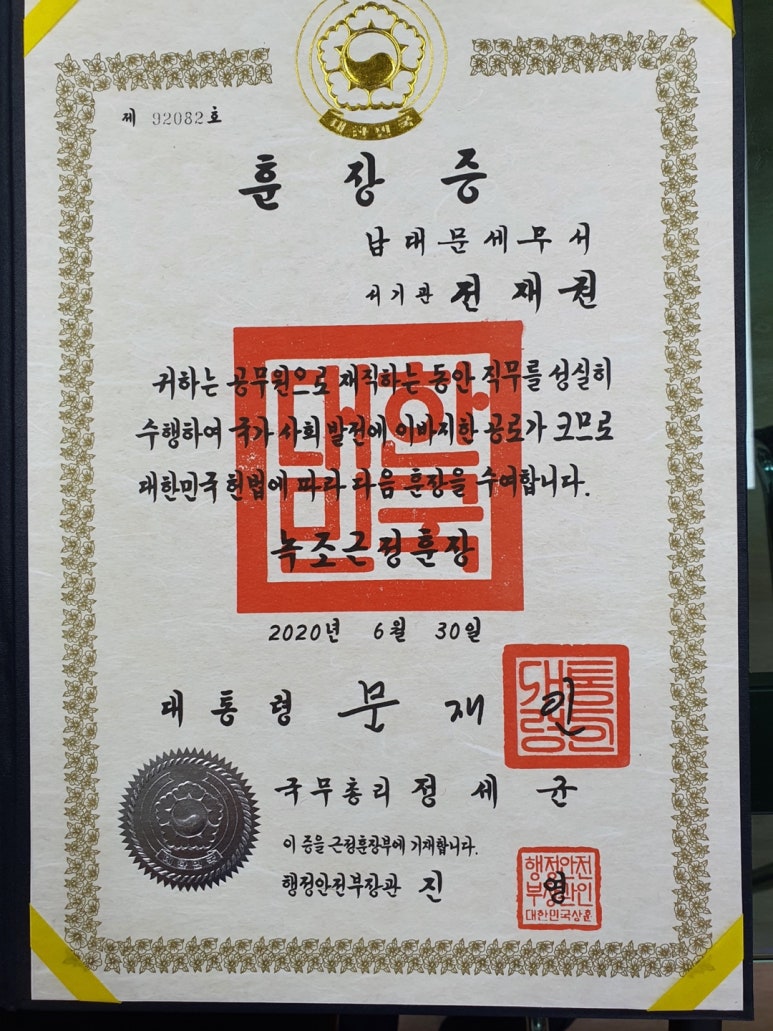 대한민국
제 92082호
훈장증
남대문세무서
서기관 전재권
귀하는 공무원으로 재직하는 동안 직무를 성실히
수행하여 국가 사회 발전에 이바지한 공로가 크므로
대한민국 헌법에 따라 다음 훈장을 수여합니다.
녹조근정훈장
2020년 6월 30일
대통령 문재인
국무총리 정세균
이 증을 근정훈장부에 기재합니다.
행정안전부장관 진영
대한민국
대통령의인
대한민국
행정안전
부장관인
대한민국상훈